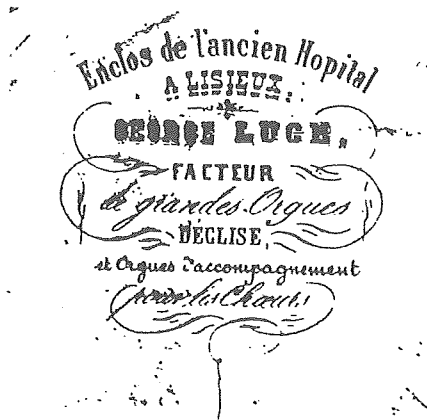 Enclos de l'ancien Hopital
A LISIEUX.
GEORGE LUCE,
FACTEUR
de grandes Orgues
D'ÉGLISE,
et Orgues d'accompagnement
pour les Chœurs